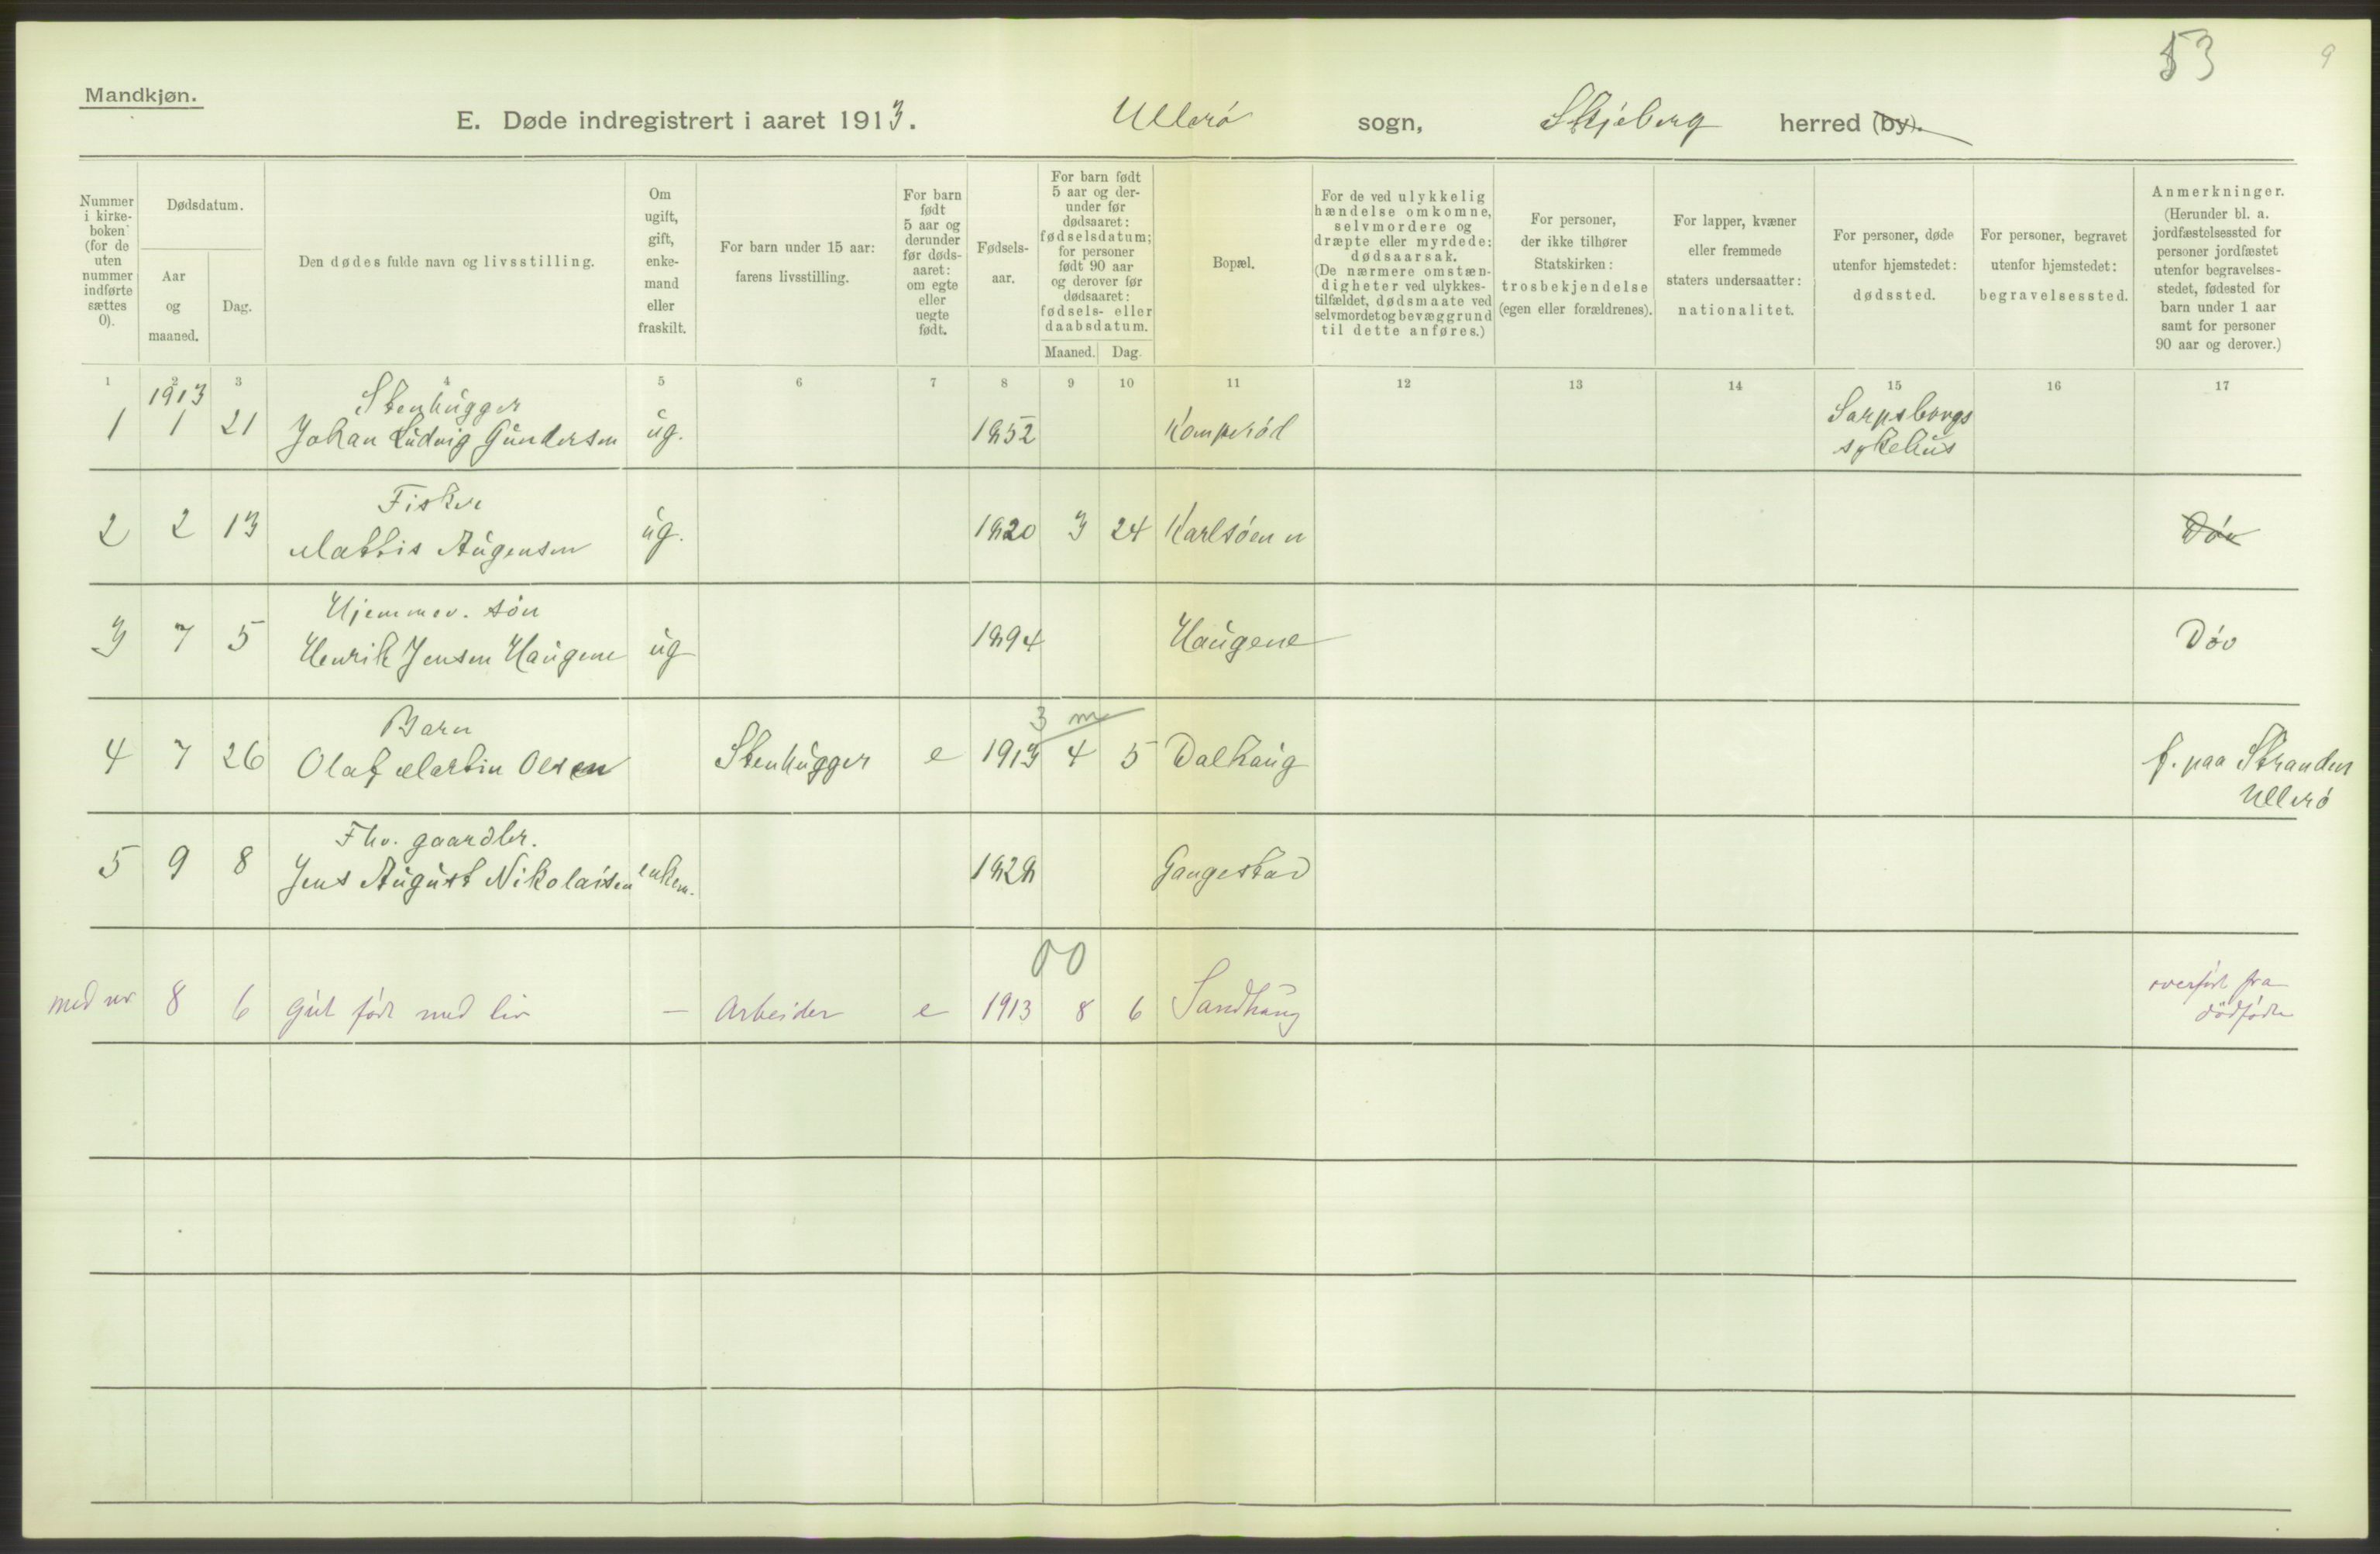 53
9
Mandkjøn.
E. Døde indregistrert i aaret 1913. Ullerö sogn, Skjeberg herred (by).
Nummer i kirkeboken (for de uten nummer indførte sættes 0).
Dødsdatum.
Aar og maaned.
Dag.
Den dødes fulde navn og livsstilling.
Om ugift, gift, enkemand eller fraskilt.
For barn under 15 aar: farens livsstilling.
For barn født 5 aar og derunder før dødsaaret: om egte eller uegte født.
Fødselsaar.
For barn født 5 aar og derunder før dødsaaret: fødselsdatum; for personer født 90 aar og derover før dødsaaret: fødsels- eller daabsdatum.
Maaned. Dag.
Bopæl.
For de ved ulykkelig hændelse omkomne, selvmordere og dræpte eller myrdede: dødsaarsak. (De nærmere omstændigheter ved ulykkestilfældet, dødsmaate ved selvmordet og bevæggrund til dette anføres.)
For personer, der ikke tilhører Statskirken: trosbekjendelse (egen eller forældrenes).
For lapper, kvæner eller fremmede staters undersaatter: nationalitet.
For personer, døde utenfor hjemstedet: dødssted.
For personer, begravet utenfor hjemstedet: begravelsessted.
Anmerkninger. (Herunder bl. a. jordfæstelsessted for personer jordfæstet utenfor begravelsesstedet, fødested for barn under 1 aar samt for personer 90 aar og derover.)
1 2 3 4 5 6 7 8 9 10 11 12 13 14 15 16 17
1913 Stenhugger Sarpsborgs
1 1 21 Johan Ludvig Gundersen ug. 1852 Komperöd sykehus
Fisker
2 2 13 Mattis Augensen ug. 1820 3 24 Karlsöen Döv
Hjemmev. sön
3 7 5 Henrik Jensen Haugene ug 1894 Haugene Döv
Barn 3 m
4 7 26 Olaf Martin Olsen Stenhugger e 1913 4 5 Dalhaug f. paa Stranden
Ullerö
Fhv. gaardbr.
5 9 8 Jens August Nikolaisen enkem. 1828 Gangestad
00
med nr 8 6 gut född med liv – Arbeider e 1913 8 6 Sandhaug overfört fra
dödfödte